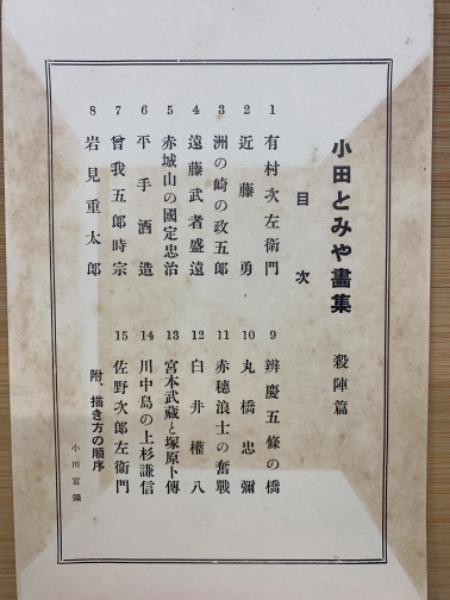 小田とみや畫集 殺陣篇
目次
1 有村次左衛門
2 近藤勇
3 洲の崎の政五郎
4 遠藤武者盛遠
5 赤城山の國定忠治
6 平手酒造
7 曾我五郎時宗
8 岩見重太郎
9 辨慶五條の橋
10 丸橋忠彌
11 赤穂浪士の奮戰
12 白井權八
13 宮本武藏と塚原卜傳
14 川中島の上杉謙信
15 佐野次郎左衞門
附、描き方の順序
小川官彌